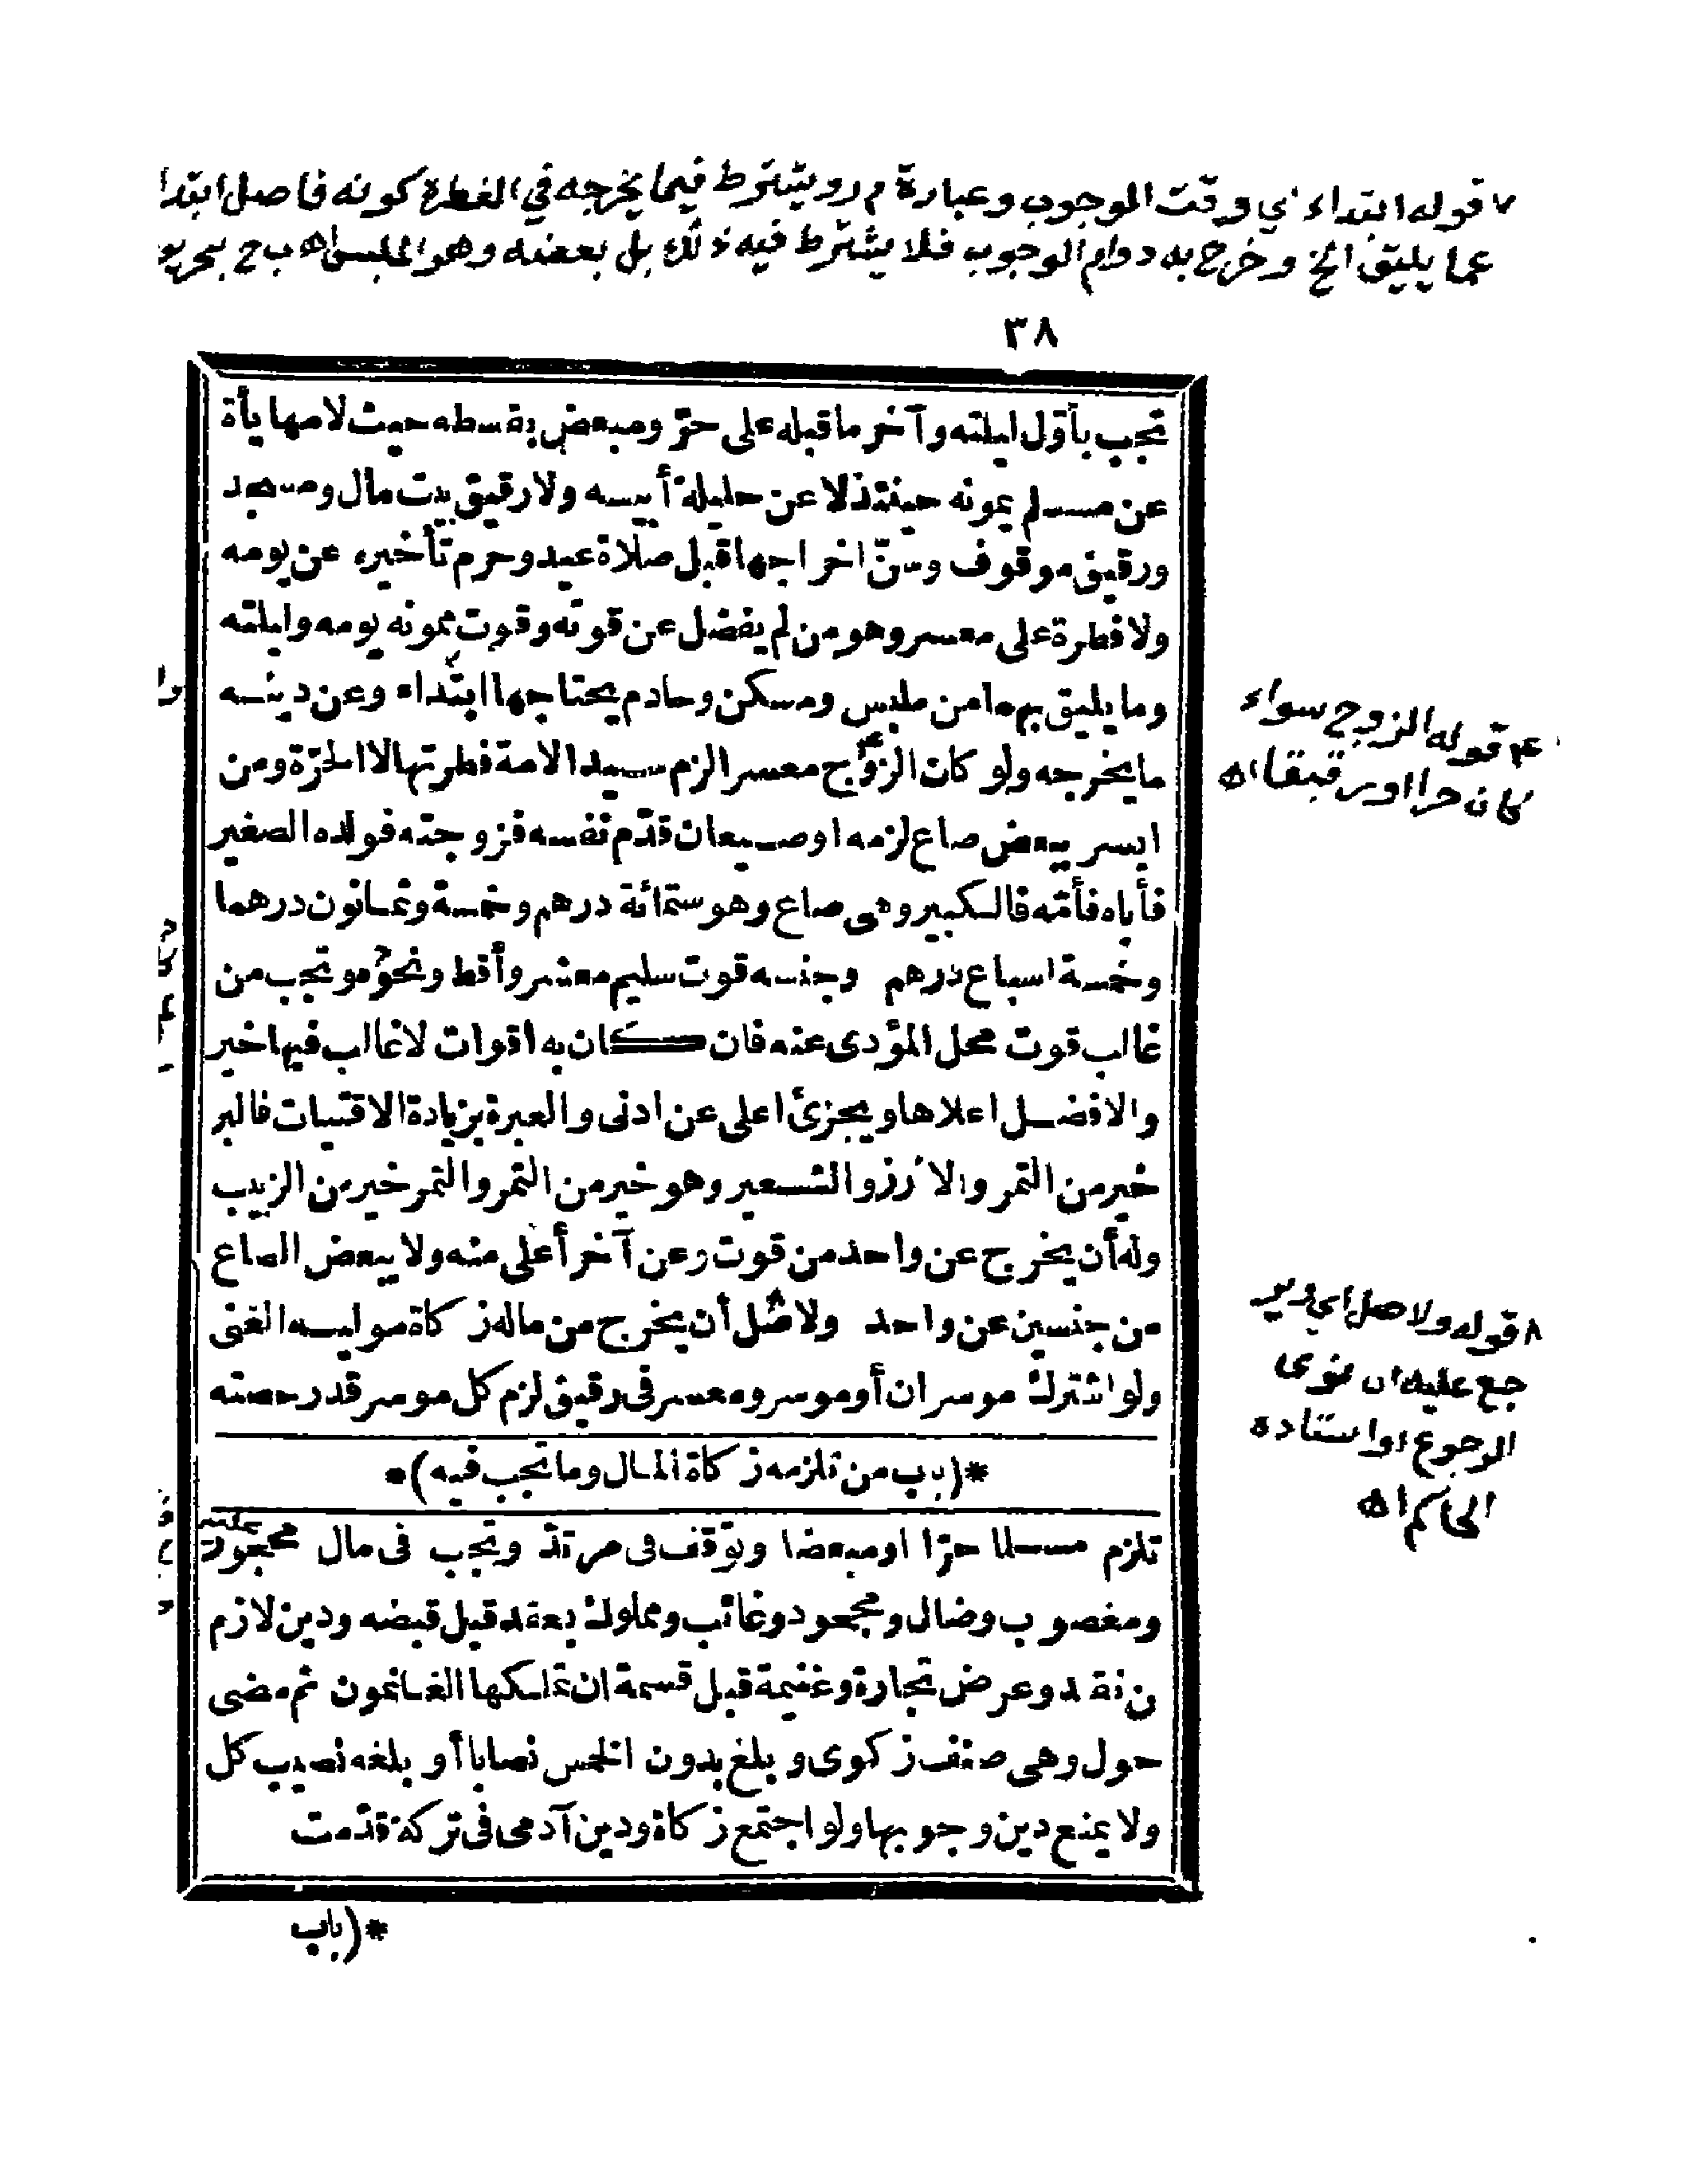 ٧ قوله ابتداء اي وقت الوجوب وعبارة م ر ويشترط فيما يخرجه في الفطرة كونه فاضلا ابتدا
عما يليق الخ وخرج به دوام الوجوب فلا يشترط فيه ذلك بل بعضه وهو الملبس اه ب ج بحر
٣٨
تجب بأوّل ليلته وآخر ما قبله على حرّ ومبعض بقسطه حيث لا مهايأة
عن مسلم يمونه حينئذ لا عن حليلة أبيه ولا رقيق بيت مال ومسجد
ورقيق موقوف وسنّ اخراجها قبل صلاة عيد وحرم تأخيره عن يومه
ولا فطرة على معسر وهو من لم يفضل عن قوته وقوت ممونه يومه وليلته
وما يليق بهما من ملبس ومسكن وخادم يحتاجها ابتداء وعن دينه
ما يخرجه ولو كان الزوج معسرا لزم سيد الامة فطرتها لا الحرّة ومن
ايسر ببعض صاع لزمه او صيعان قدّم نفسه فزوجته فولده الصغير
فأباه فأمّه فالكبير وهى صاع وهو ستمائة درهم وخمسة وثمانون درهما
وخمسة اسباع درهم وجنسه قوت سليم معشر وأقط ونحوه وتجب من
غالب قوت محل المؤدى عنه فان كان به اقوات لا غالب فيها خير
والافضل اعلاها ويجزئ اعلى عن ادنى والعبرة بزيادة الاقتيات فالبر
خير من التمر والارز والشعير وهو خير من التمر والتمر خير من الزبيب
وله أن يخرج عن واحد من قوت وعن آخر أعلى منه ولا يبعض الصاع
من جنسين عن واحد ولاصل أن يخرج من ماله زكاة موليه الغنى
ولو اشترك موسران أو موسر ومعسر فى رقيق لزم كل موسر قدر حصته
*(باب من تلزمه زكاة المال وما تجب فيه)*
تلزم مسلما حرّا او مبعضا وتوقف فى مرتدّ وتجب فى مال محجور عليه
ومغصوب وضال ومجحود وغائب ومملوك بعقد قبل قبضه ودين لازم
من نقد وعرض تجارة وغنيمة قبل قسمة ان تملكها الغانمون ثم مضى
حول وهى صنف زكوى وبلغ بدون الخمس نصابا أو بلغه نصيب كل
ولا يمنع دين وجوبها ولو اجتمع زكاة ودين آدمى فى تركة قدّمت
*(باب
٤ قوله الزوج سواء
كان حرا او رقيقا اه
٨ قوله ولاصل اي وير
جع عليه ان نوى
الرجوع او استاذه
الحاكم اه